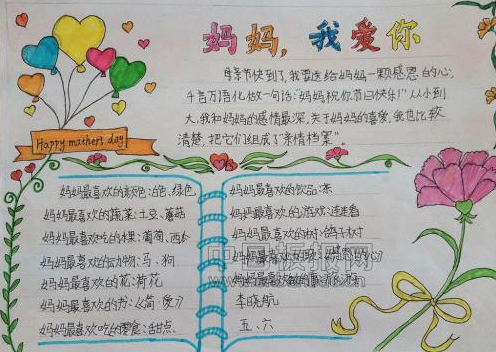 妈妈，我爱你
母亲节快到了，我要送给妈妈一颗感恩的心，
千言万语化做一句话："妈妈祝你节日快乐！"从小到
大，我和妈妈的感情最深，关于妈妈的喜爱，我也比较
清楚，把它们组成了"亲情档案"。
Happy mathers day
妈妈最喜欢的颜色：白色、绿色
妈妈最喜欢的蔬菜：土豆、蘑菇
妈妈最喜欢吃的水果：葡萄、西
妈妈最喜欢的动物：马、狗
妈妈最喜欢的花：荷花
妈妈最喜欢的书：《简·爱》
妈妈最喜欢吃的零食：甜点
妈妈最喜欢的饮品：茶
妈妈最喜欢的游戏：连连看
妈妈最喜欢的树：鸽子树
妈妈最喜欢的歌：的心
妈妈最喜欢做的事：
李晓航
五、六
中国板报网